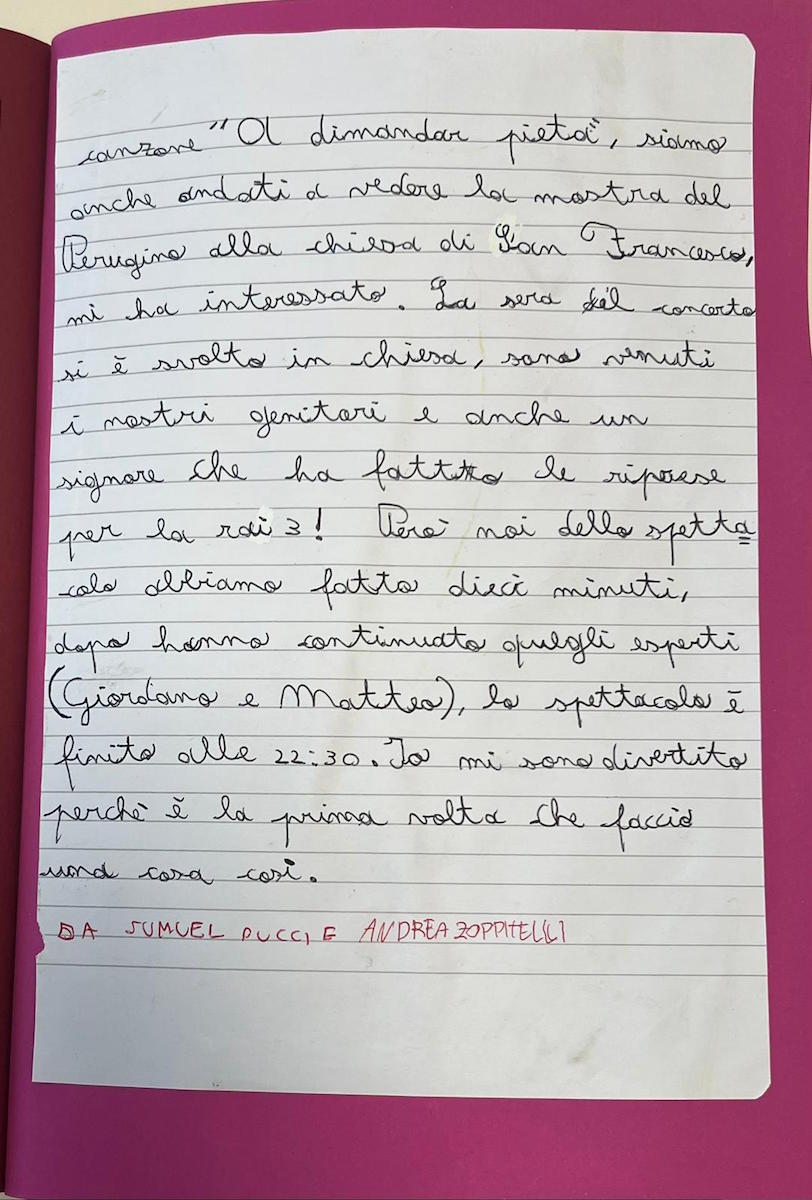 canzone "A dimandar pietà", siamo
anche andati a vedere la mostra del
Perugino alla chiesa di San Francesco,
mi ha interessato. La sera il concerto
si è svolto in chiesa, sono venuti
i nostri genitori e anche un
signore che ha fatto le riprese
per la rai 3! Però noi dello spetta
colo abbiamo fatto dieci minuti,
dopo hanno continuato quegli esperti
(Giordano e Matteo), lo spettacolo è
finito alle 22:30. Io mi sono divertito
perchè è la prima volta che faccio
una cosa così.
DA SUMUEL DUCCI E ANDREA ZOPPITELLI